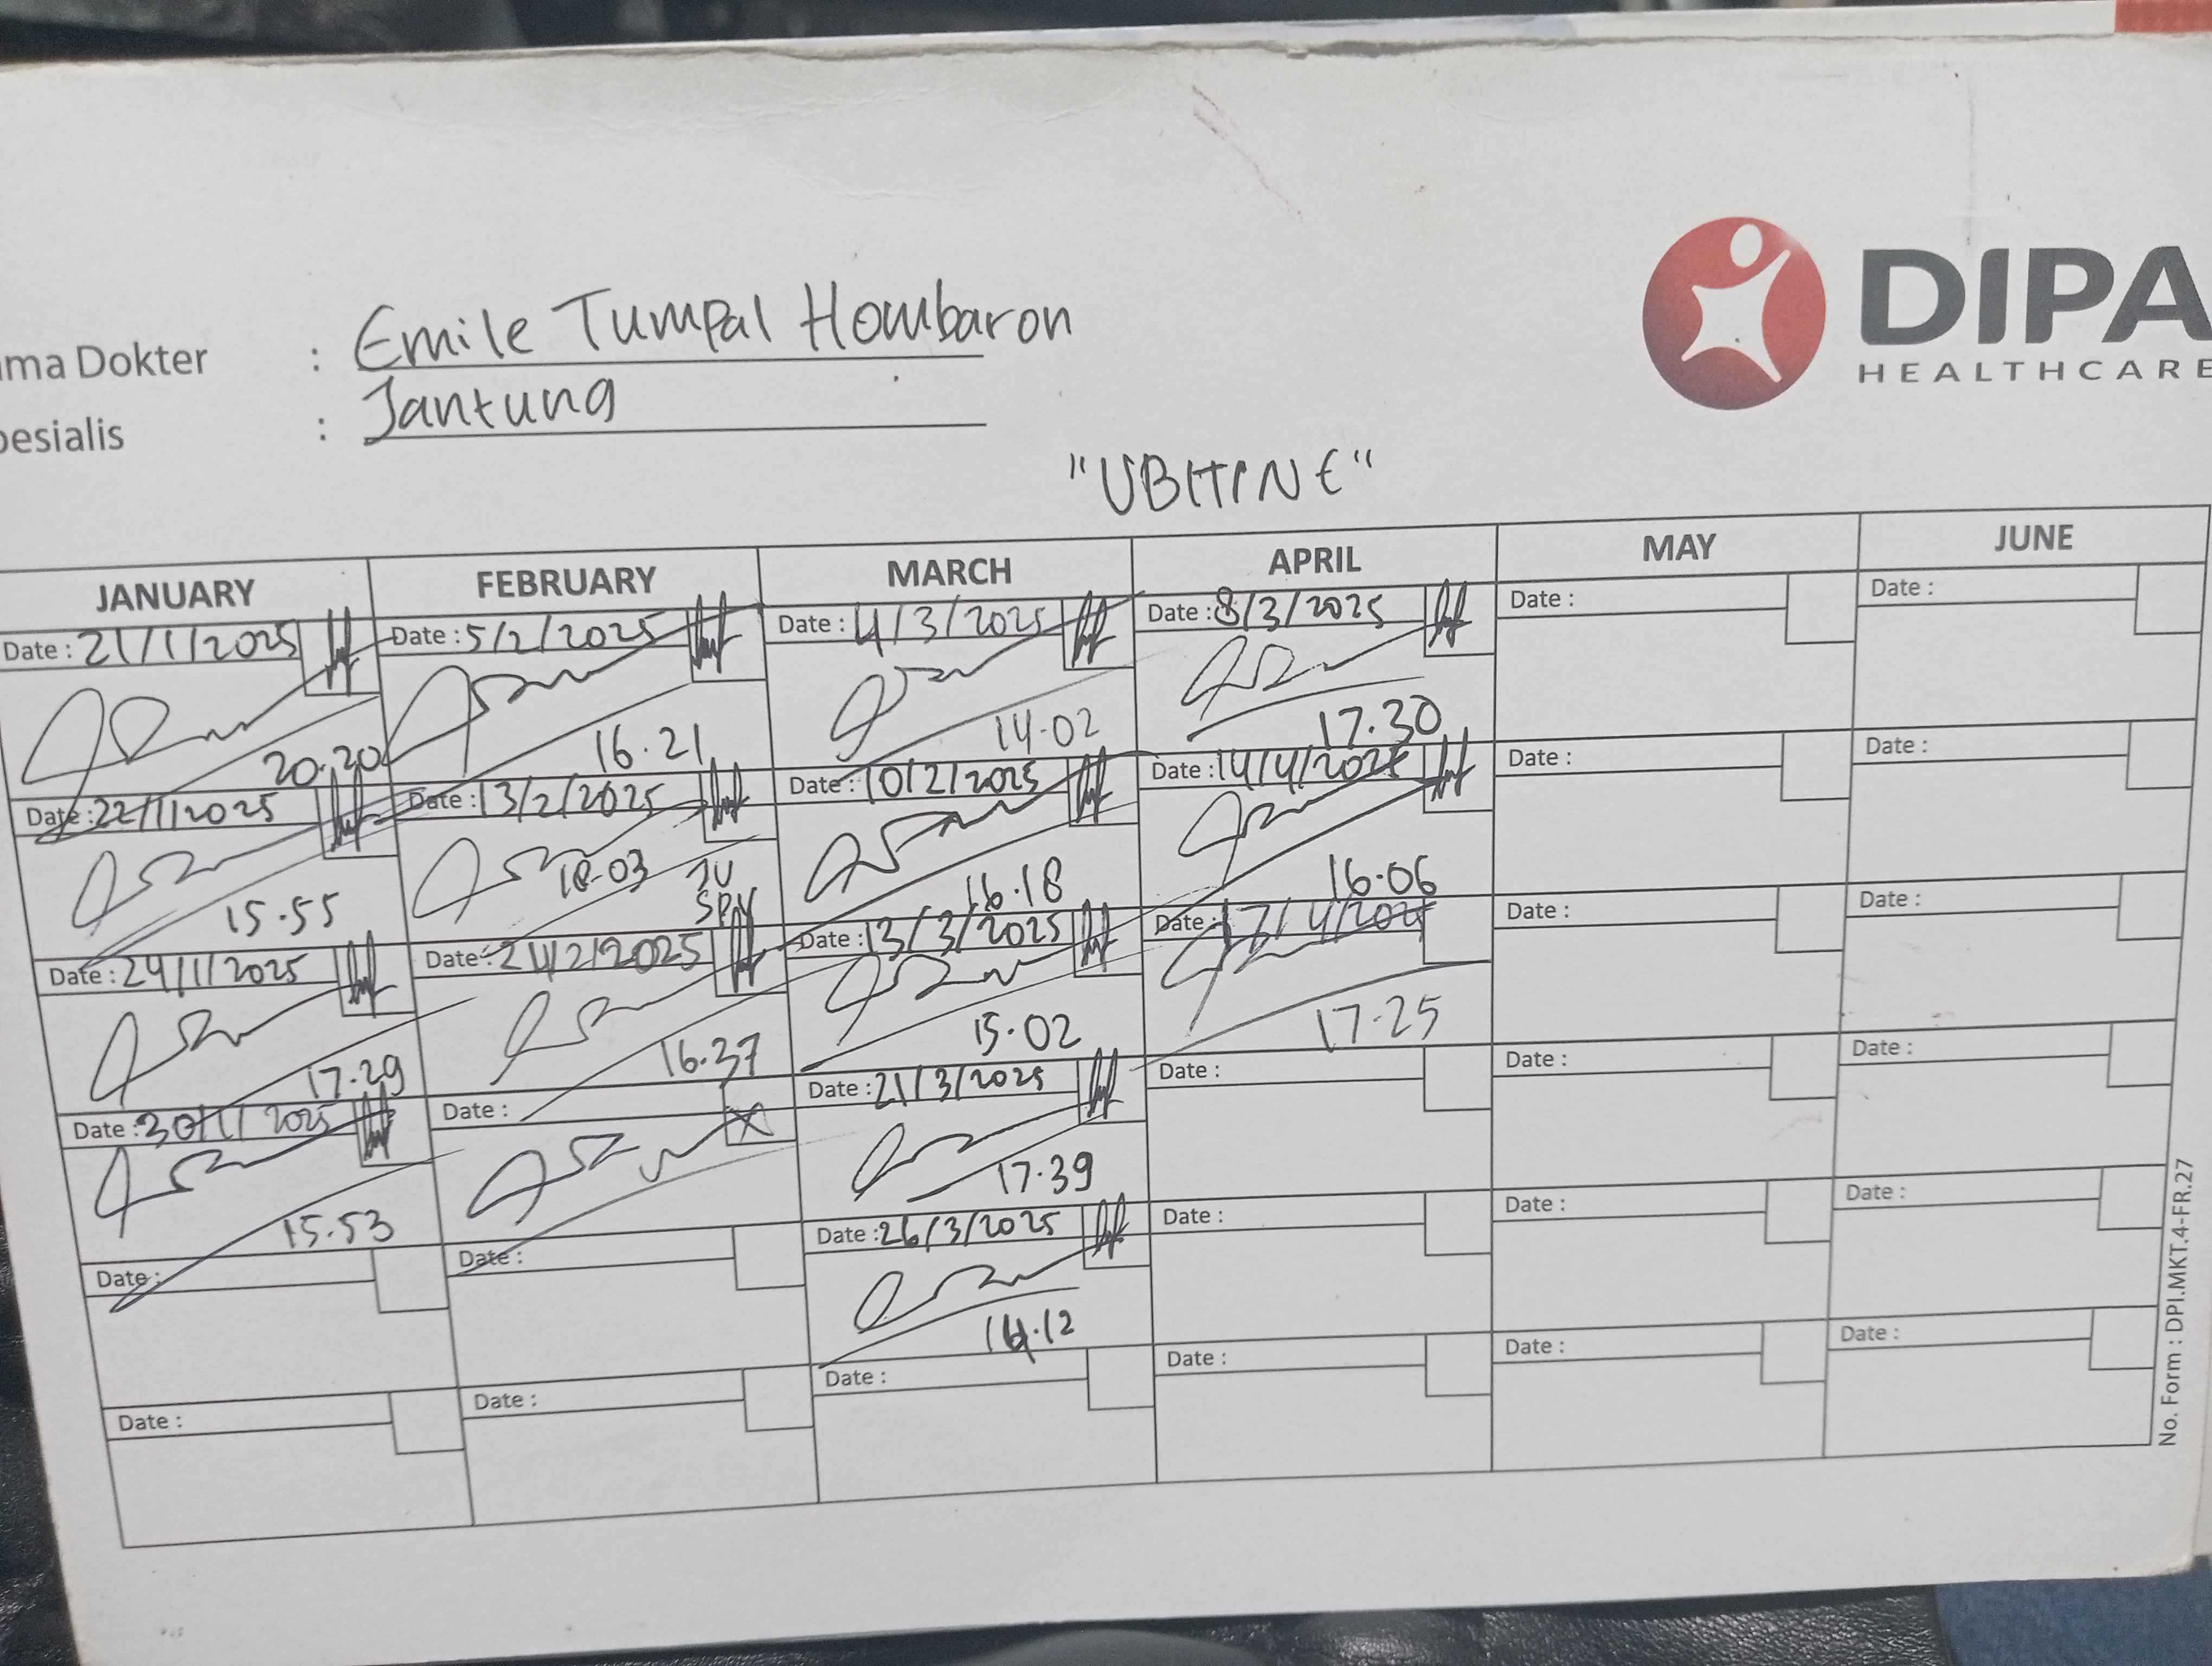 DIPA
HEALTHCARE
ma Dokter : Emile Tumpal Hombaron
esialis : Jantung
"UBITINE"
JANUARY FEBRUARY MARCH APRIL MAY JUNE
Date : 21/1/2025 Date : 5/2/2025 Date : 4/3/2025 Date : 8/3/2025 Date : Date :
20.20 16.21 14.02 17.30
Date : 22/1/2025 Date : 13/2/2025 Date : 10/2/2025 Date : 14/4/2025 Date : Date :
15.55 18.03 16.18 16.06
Date : 24/1/2025 Date : 24/2/2025 Date : 13/3/2025 Date : 17/4/2025 Date : Date :
17.29 16.37 15.02 17.25
Date : 30/1/2025 Date : Date : 21/3/2025 Date : Date : Date :
15.53 17.39
Date : Date : Date : 26/3/2025 Date : Date : Date :
Date : Date : Date : Date : Date : Date :
No. Form : DPI.MKT.4-FR.27